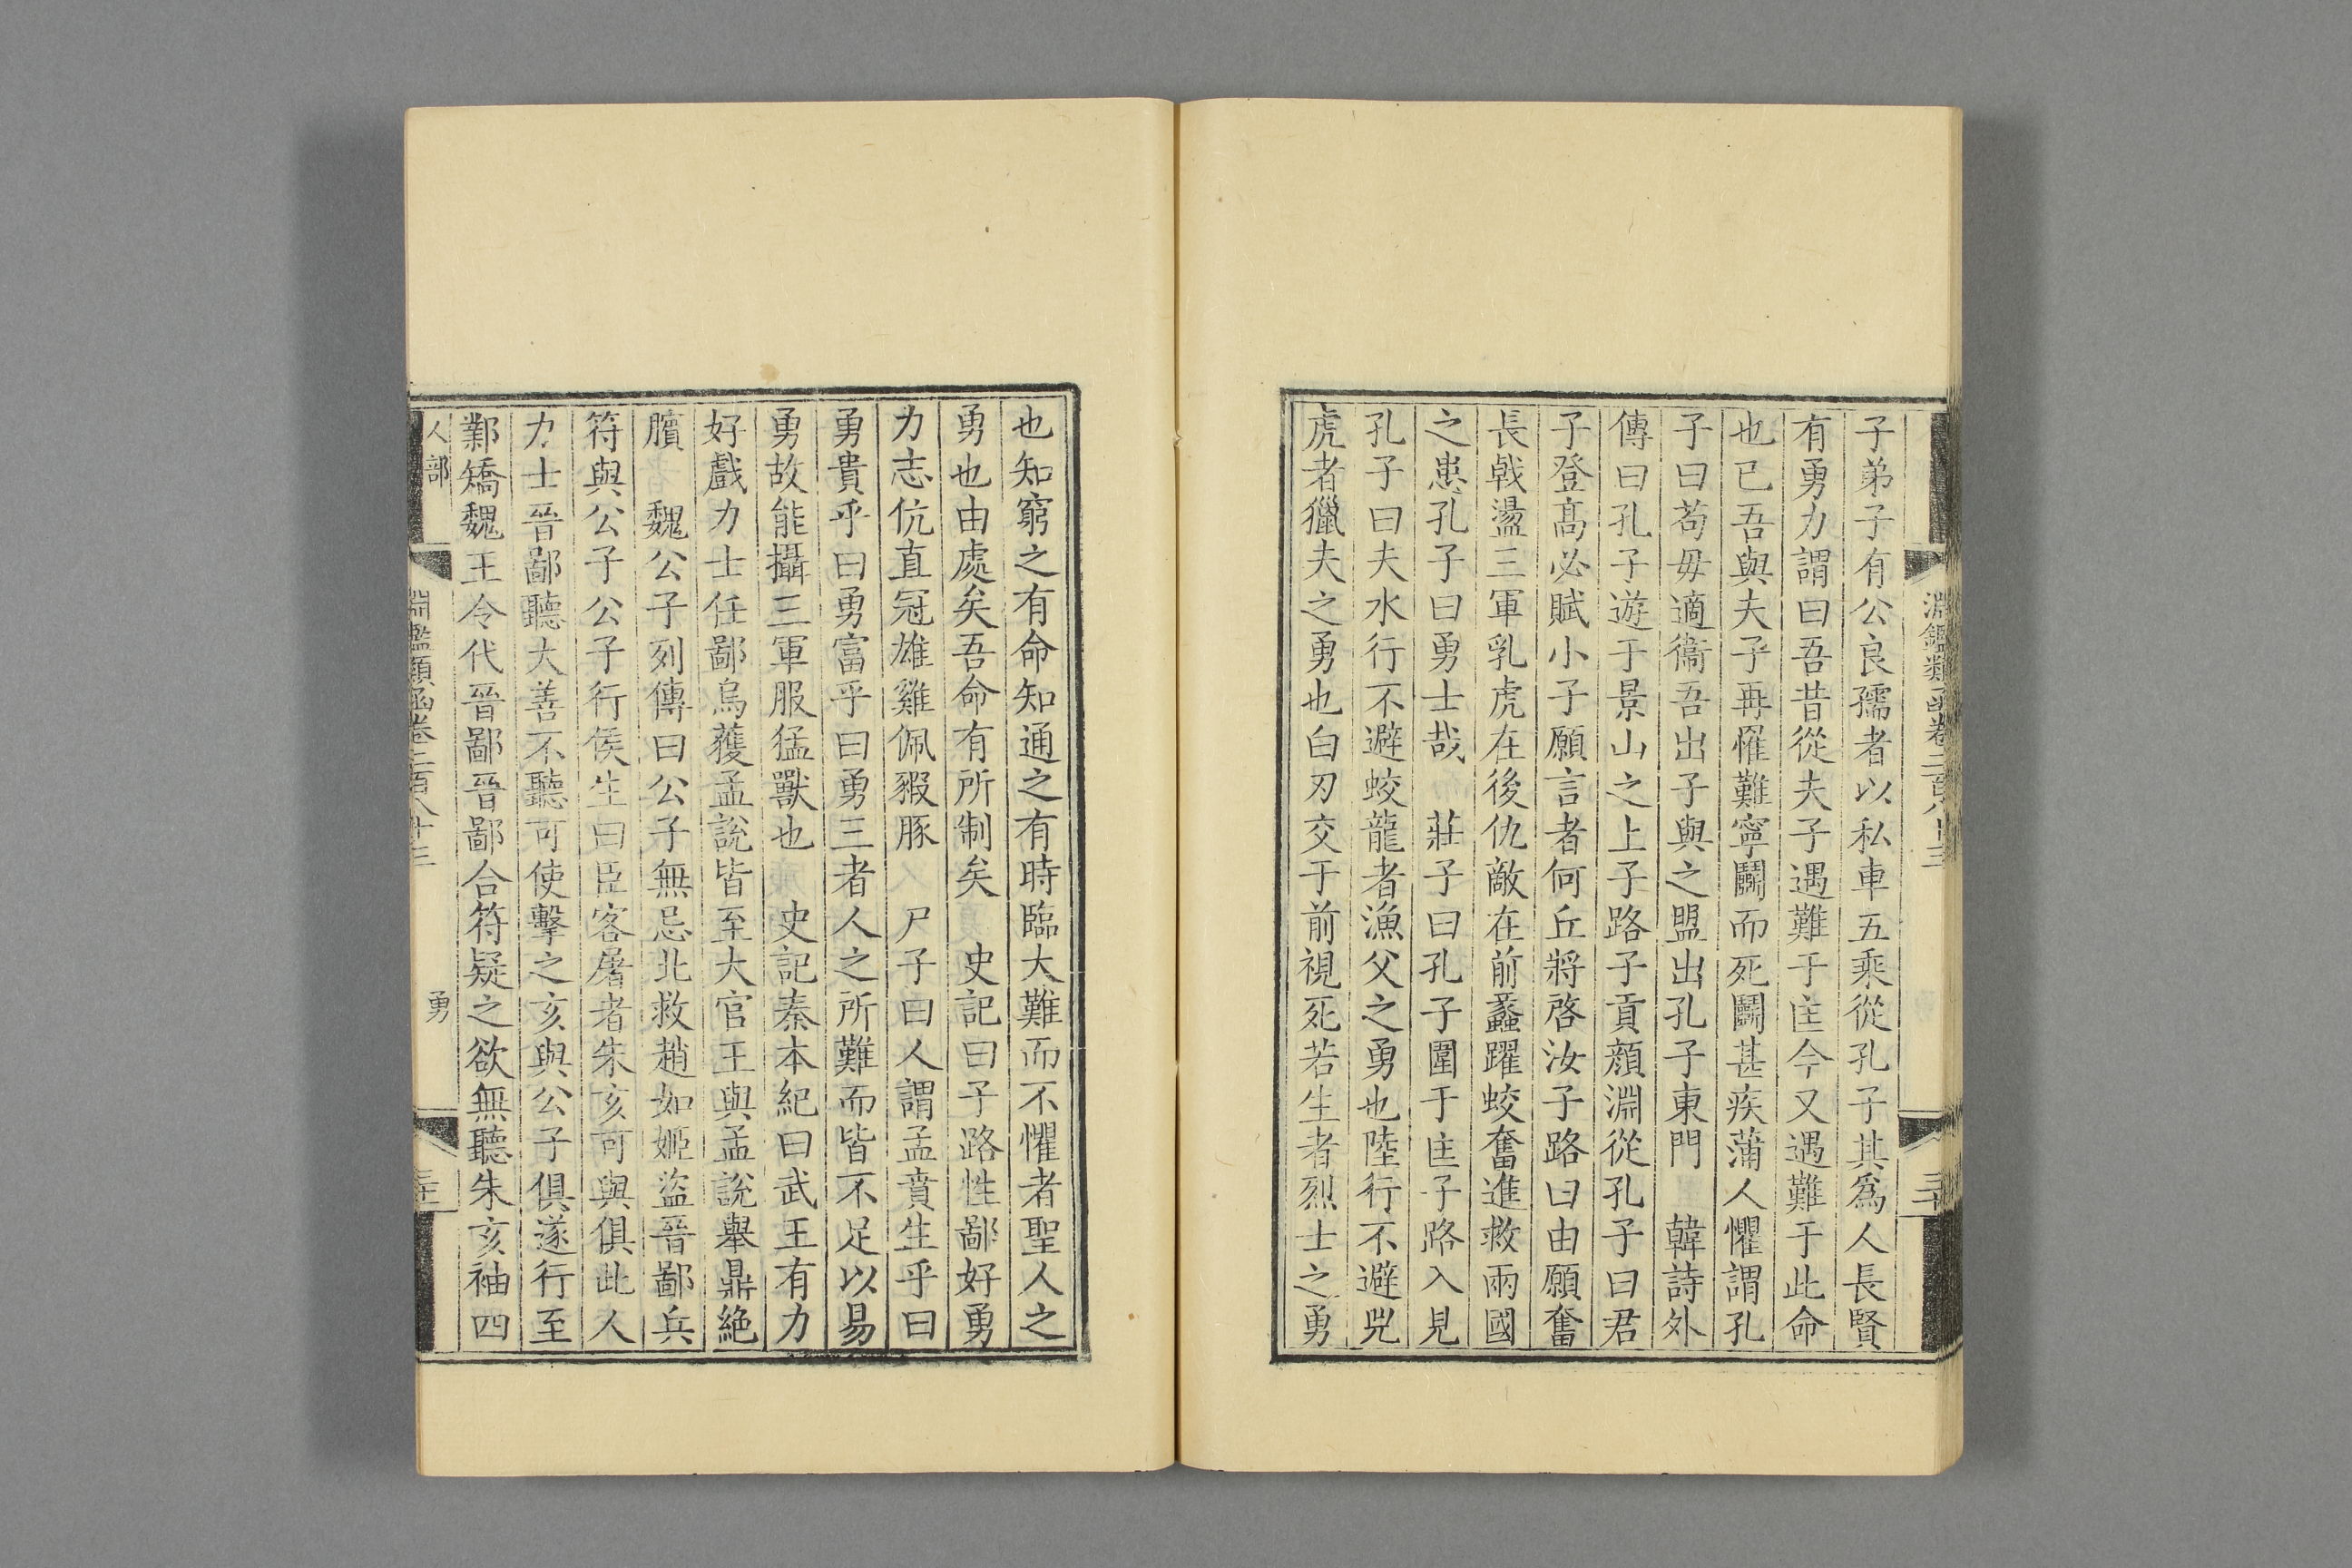 淵鑑類函卷二百八十三
三十
子弟子有公良孺者以私車五乘從孔子其爲人長賢
有勇力謂曰吾昔從夫子遇難于匡今又遇難于此命
也已吾與夫子再罹難寧鬭而死鬭甚疾蒲人懼謂孔
子曰苟毋適衞吾出子與之盟出孔子東門　韓詩外
傳曰孔子遊于景山之上子路子貢顔淵從孔子曰君
子登髙必賦小子願言者何丘將啓汝子路曰由願奮
長戟盪三軍乳虎在後仇敵在前蠡躍蛟奮進救兩國
之患孔子曰勇士哉　莊子曰孔子圍于匡子路入見
孔子曰夫水行不避蛟龍者漁父之勇也陸行不避兕
虎者獵夫之勇也白刃交于前視死若生者烈士之勇
也知窮之有命知通之有時臨大難而不懼者聖人之
勇也由處矣吾命有所制矣　史記曰子路性鄙好勇
力志伉直冠雄雞佩豭豚　尸子曰人謂孟賁生乎曰
勇貴乎曰勇富乎曰勇三者人之所難而皆不足以易
勇故能攝三軍服猛獸也　史記秦本紀曰武王有力
好戲力士任鄙烏蒦孟說皆至大官王與孟說舉鼎絶
臏　魏公子列傳曰公子無忌北救趙如姬盜晉鄙兵
符與公子公子行侯生曰臣客屠者朱亥可與俱此人
力士晉鄙聽大善不聽可使擊之亥與公子俱遂行至
鄴矯魏王令代晉鄙晉鄙合符疑之欲無聽朱亥袖四
人部
淵鑑類函卷二百八十三
勇
三十